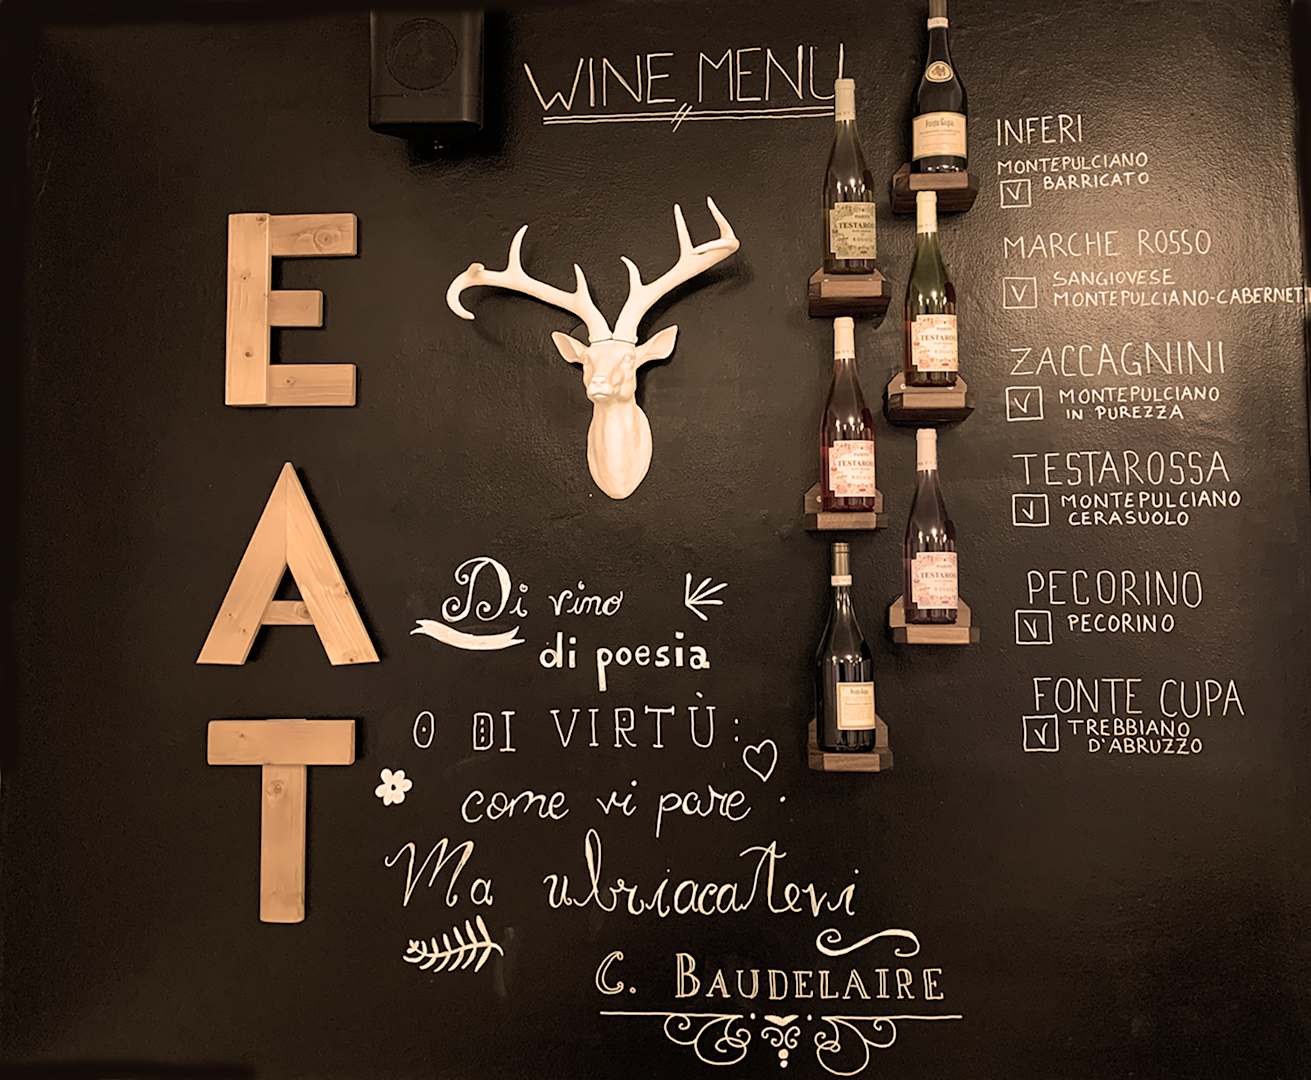 WINE MENU
EAT
INFERI
MONTEPULCIANO
BARRICATO
MARCHE ROSSO
SANGIOVESE
MONTEPULCIANO-CABERNET
ZACCAGNINI
MONTEPULCIANO
IN PUREZZA
TESTAROSSA
MONTEPULCIANO
CERASUOLO
PECORINO
PECORINO
FONTE CUPA
TREBBIANO
D'ABRUZZO
Di vino
di poesia
O DI VIRTÙ:
come vi pare.
Ma ubriacatevi
C. BAUDELAIRE
Fonte Cupa
TESTAROS
TESTAROS
TESTAROS
TESTAROS